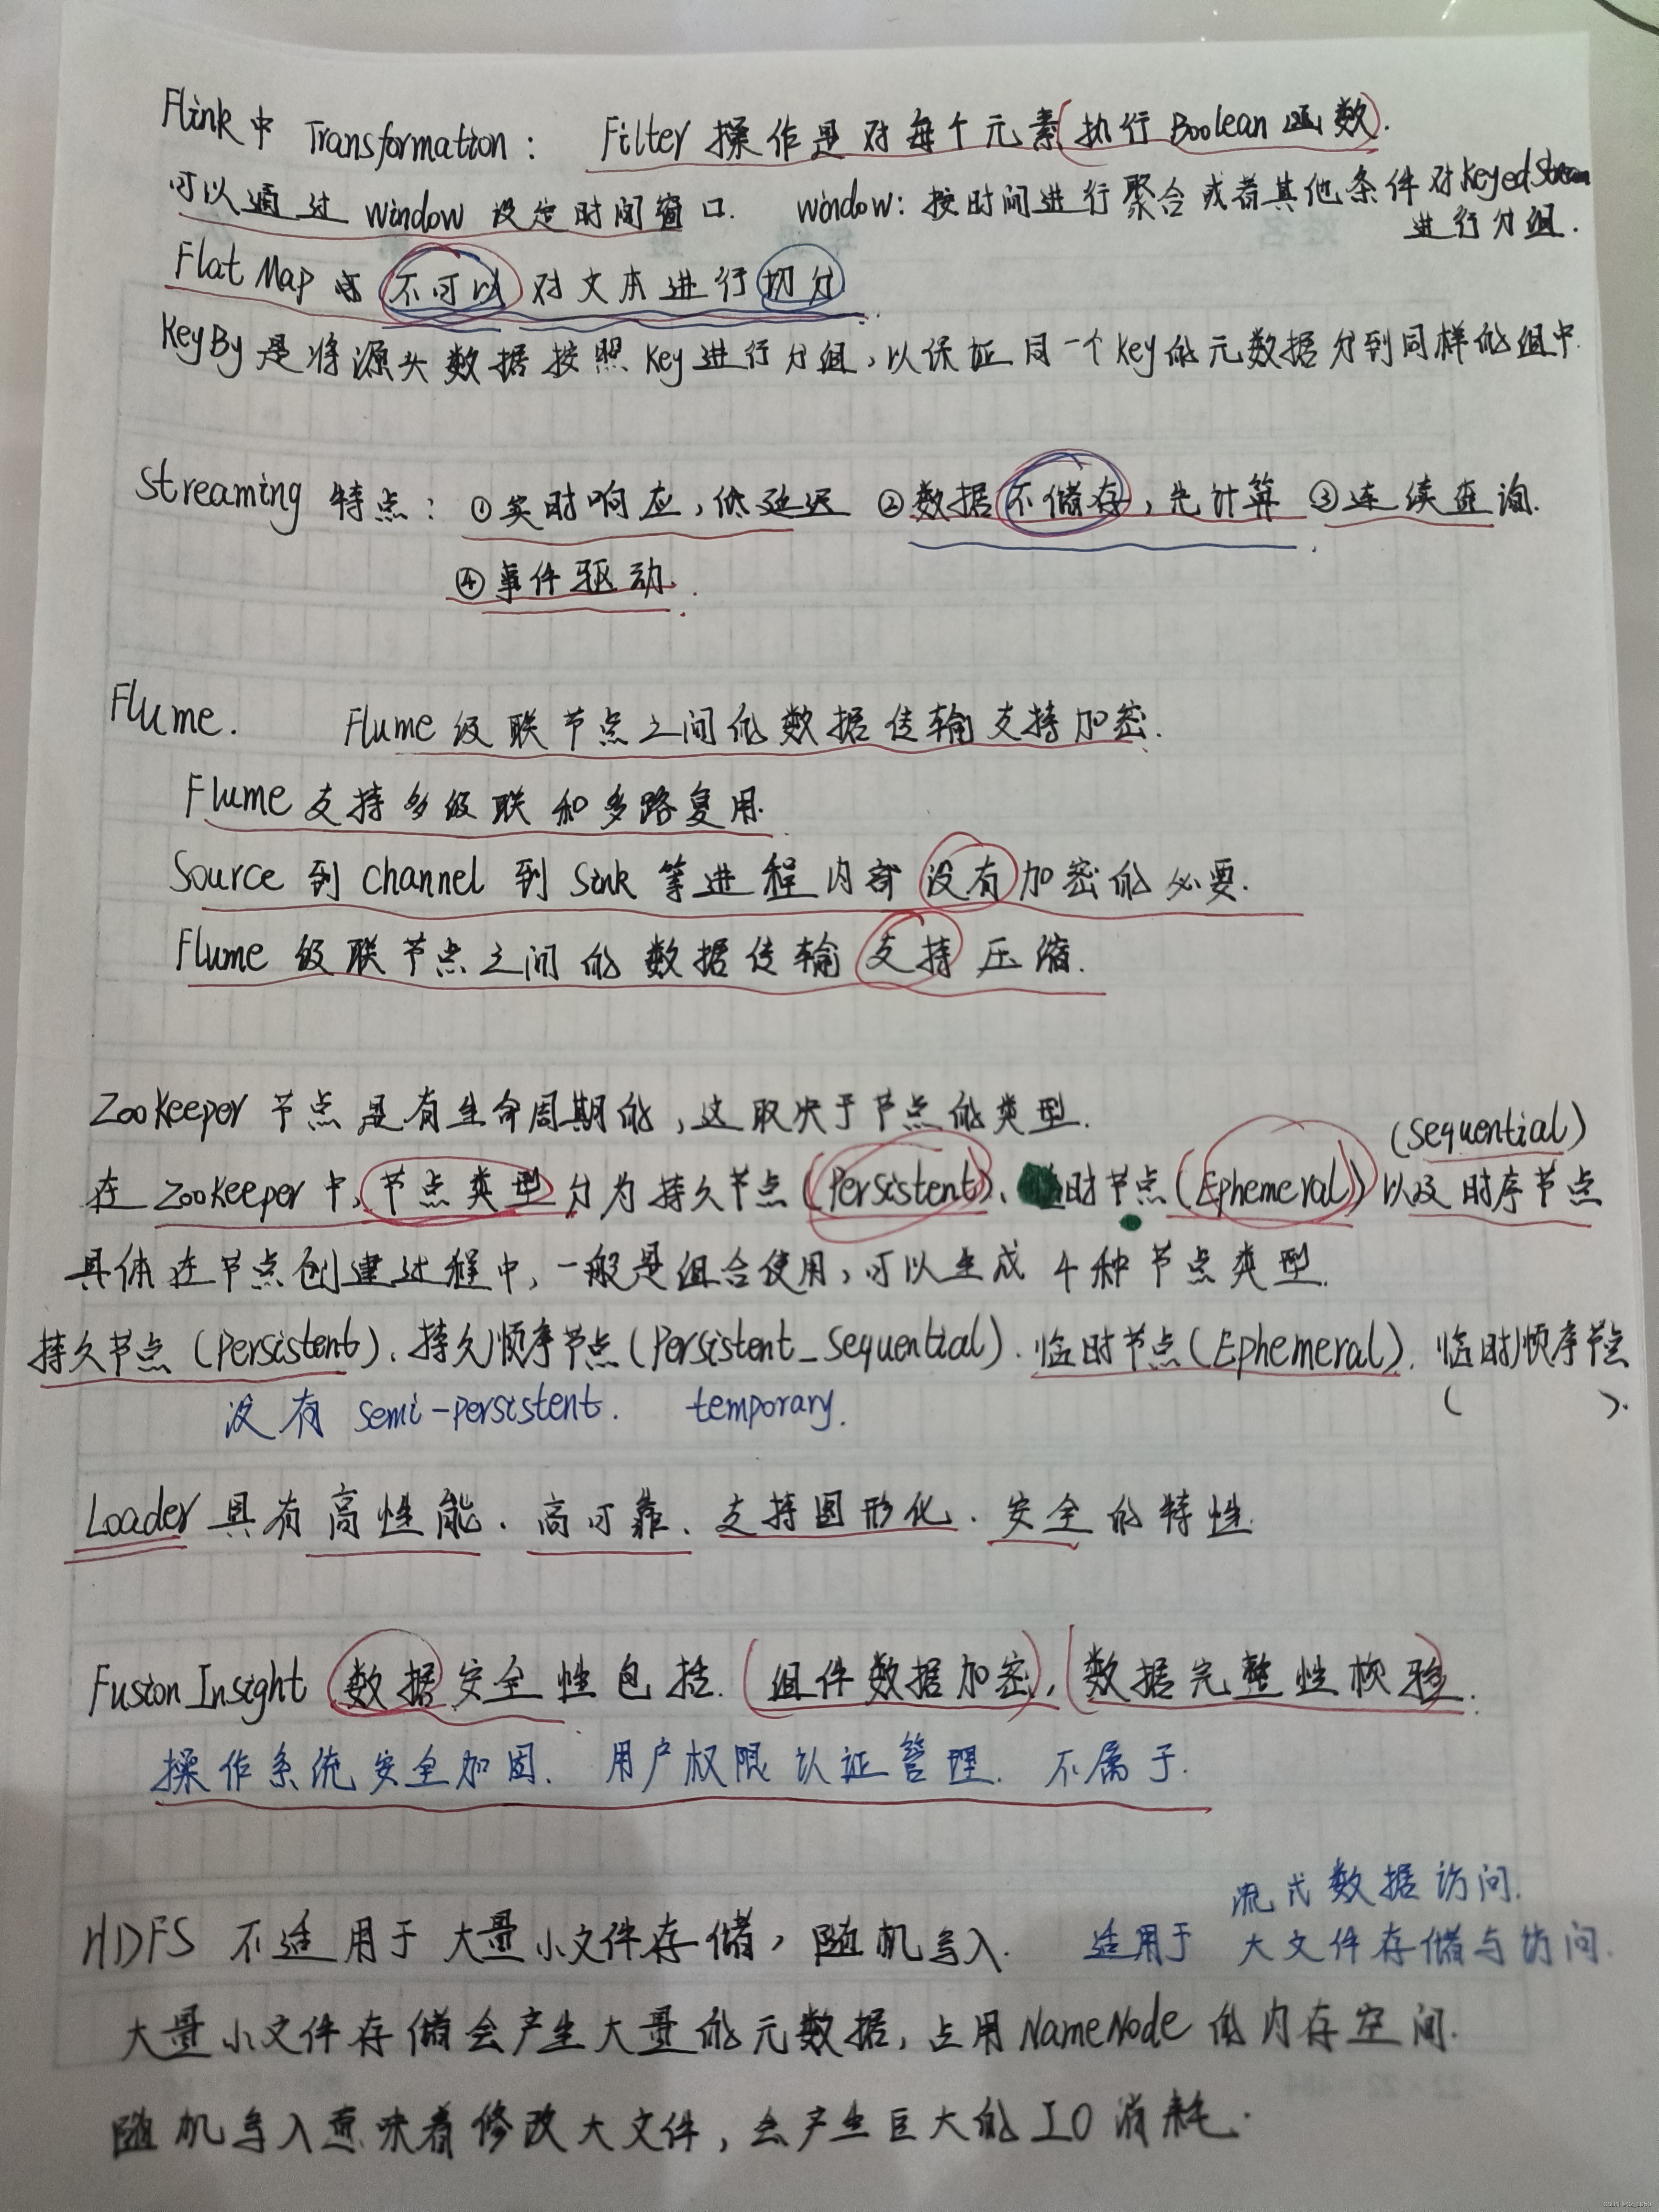 Flink中 Transformation： Filter 操作是对每个元素(执行Boolean函数).
可以通过 window 设定时间窗口. window：按时间进行聚合或者其他条件对KeyedStream
进行分组.
Flat Map 不可以 对文本进行切分.
KeyBy是将源头数据按照Key进行分组，以保证同一个key的元数据分到同样的组中.
Streaming 特点：①实时响应，低延迟 ②数据不储存，先计算 ③连续查询.
④事件驱动.
Flume. Flume级联节点之间的数据传输支持加密.
Flume支持多级联和多路复用.
Source 到 channel 到 Sink 等进程内部没有加密的必要.
Flume 级联节点之间的数据传输支持压缩.
ZooKeeper 节点是有生命周期的，这取决于节点的类型.
(Sequential)
在 ZooKeeper 中，节点类型分为持久节点(Persistent)、临时节点(Ephemeral)以及时序节点
具体在节点创建过程中，一般是组合使用，可以生成 4种节点类型.
持久节点(Persistent)、持久顺序节点(Persistent_Sequential).临时节点(Ephemeral).临时顺序节点
( ).
没有 Semi-persistent. temporary.
Loader 具有高性能、高可靠、支持图形化、安全的特性.
FusionInsight 数据安全性包括.(组件数据加密),(数据完整性校验).
操作系统安全加固. 用户权限认证管理. 不属于.
流式数据访问.
HDFS 不适用于大量小文件存储，随机写入. 适用于 大文件存储与访问.
大量小文件存储会产生大量的元数据，占用NameNode的内存空间.
随机写入意味着修改大文件，会产生巨大的IO消耗.